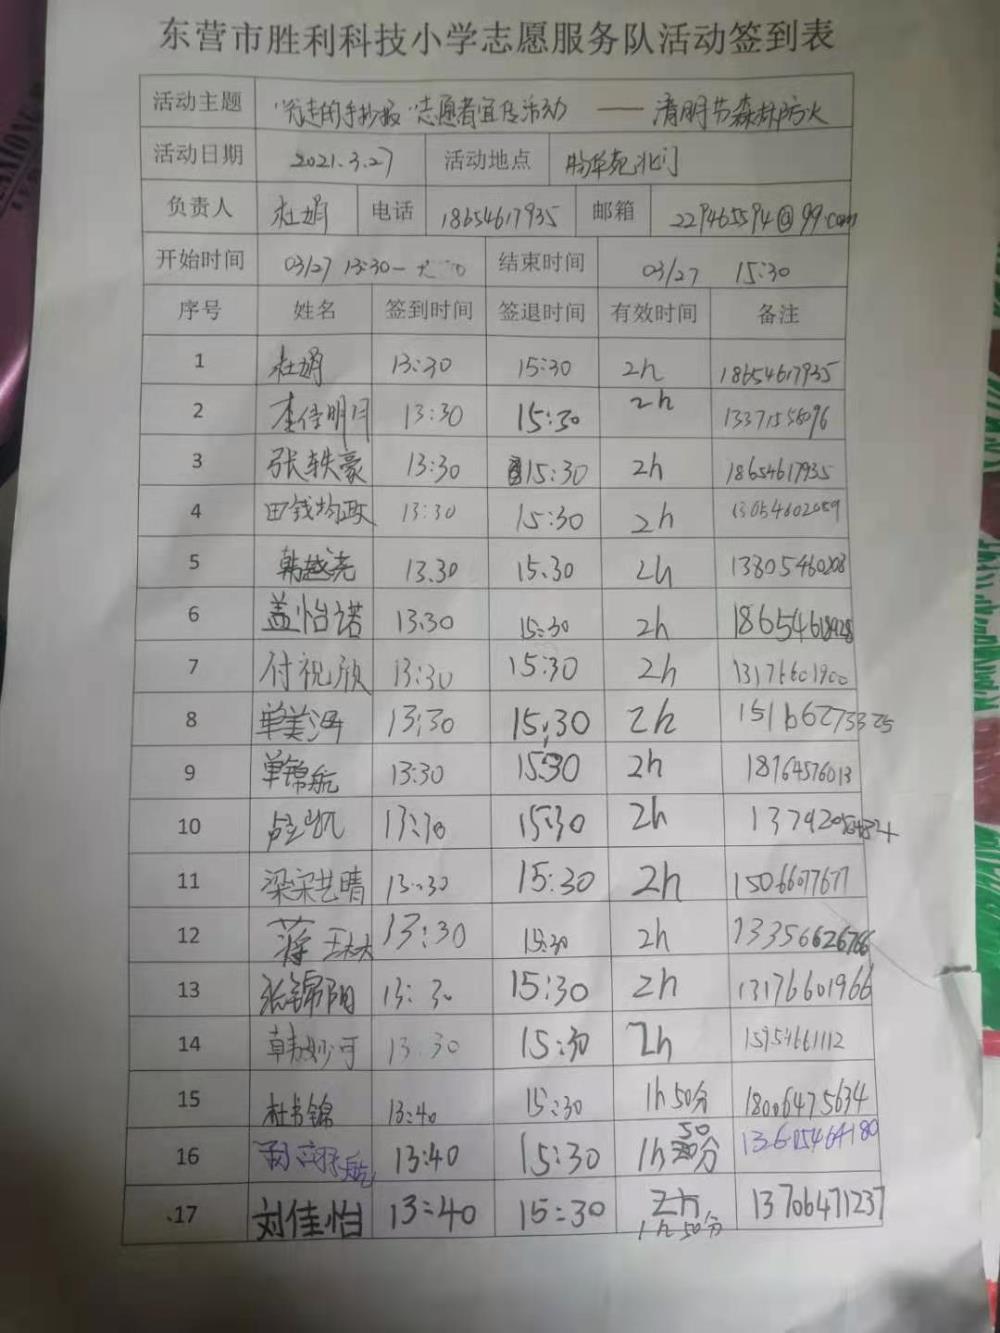 东营市胜利科技小学志愿服务队活动签到表
活动主题 "行走的手抄报"志愿者宣传活动 —— 清明节森林防火
活动日期 2021.3.27 活动地点 物华苑北门
负责人 杜娟 电话 18654617935 邮箱 229465594@99.com
开始时间 03/27 13:30— 结束时间 03/27 15:30
序号 姓名 签到时间 签退时间 有效时间 备注
1 杜娟 13:30 15:30 2h 18654617935
2 李佳明月 13:30 15:30 2h 13371558096
3 张轶豪 13:30 15:30 2h 18654617935
4 田钱均政 13:30 15:30 2h 13054602059
5 韩越尧 13.30 15.30 2h 13805460208
6 盖怡诺 13:30 15:30 2h
7 付祝颀 13:30 15:30 2h 13176601900
8 单美 13:30 15:30 2h 151166273325
9 单锦航 13:30 15:30 2h 18764576013
10 13:30 15:30 2h
11 梁宋艺晴 13:30 15:30 2h 15066077677
12 蒋 13:30 15:30 2h 13356626766
13 张锦阳 13:30 15:30 2h 13176601966
14 韩妙可 13:30 15:30 2h 15954661112
15 杜书锦 13:40 15:30 1h50分 18006475634
16 13:40 15:30 1h 50分 13605464180
17 刘佳怡 13:40 15:30 2h 1h50分 13706471237